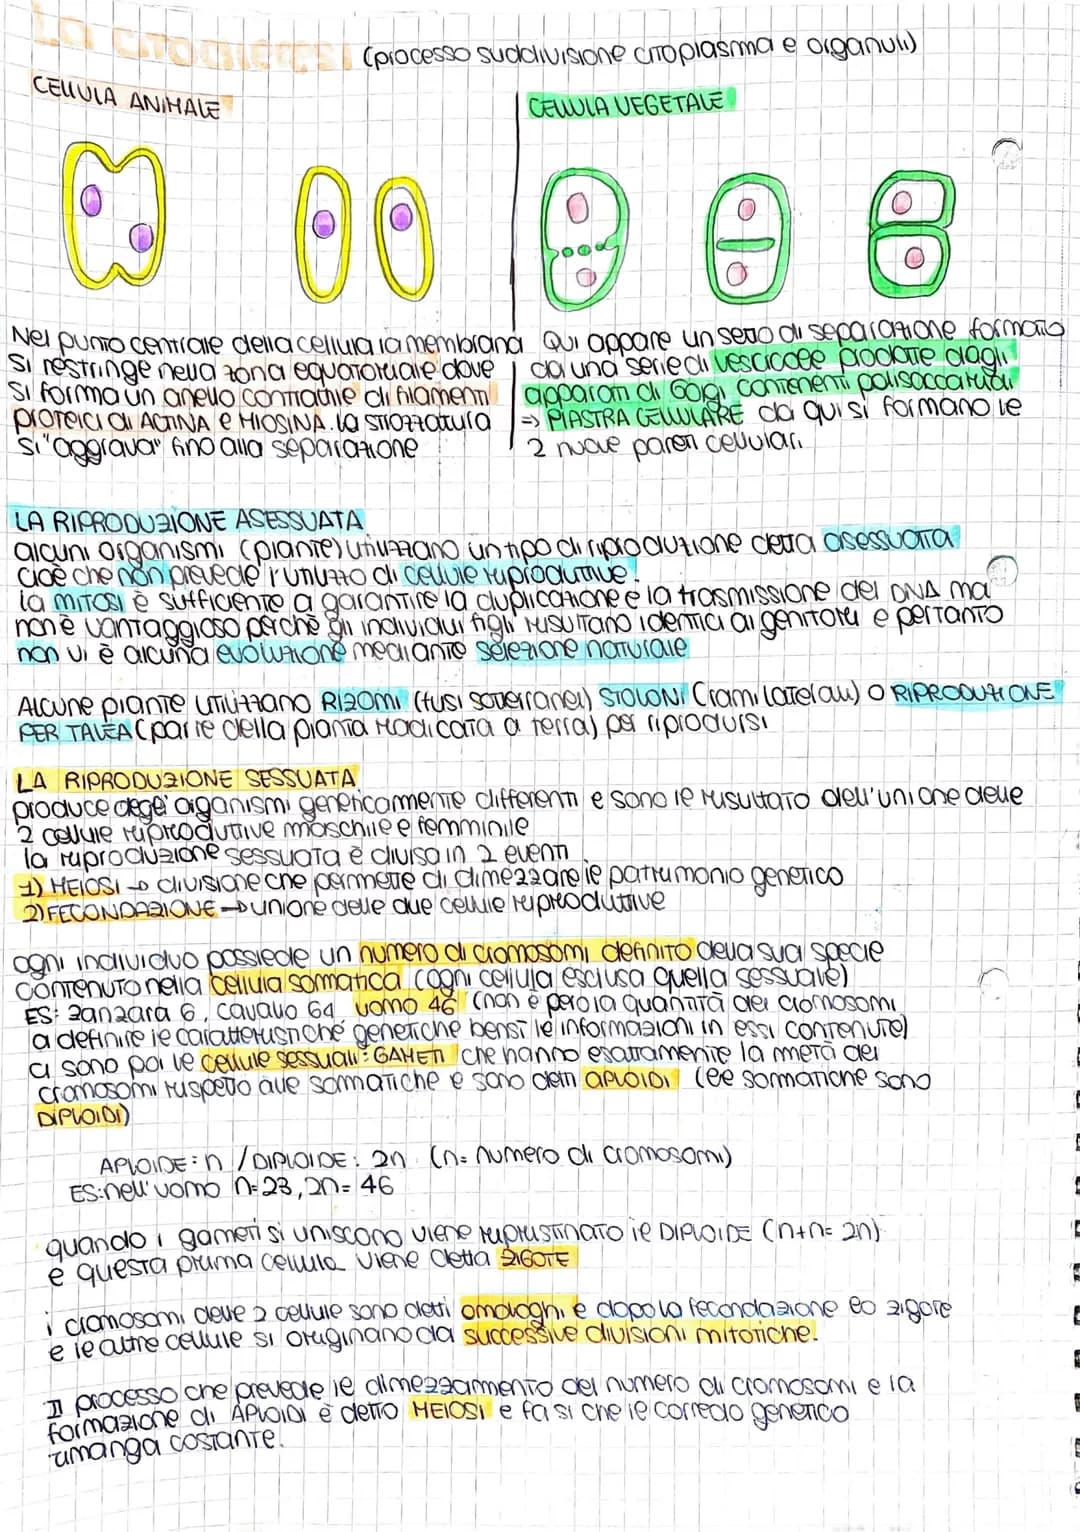 La citodieresi (processo suddivisione citoplasma e organuli)
CELLULA ANIMALE
CELLULA VEGETALE
Nel punto centrale della cellula la membrana
si restringe nella zona equatoriale dove
si forma un anello contrattile di filamenti
proteici di ACTINA e MIOSINA. La strozzatura
si "aggrava" fino alla separazione
Qui appare un setto di separazione formato
da una serie di vescicole prodotte dagli
apparati di Golgi contenenti polisaccaridi
=> PIASTRA CELLULARE da qui si formano le
2 nuove pareti cellulari
LA RIPRODUZIONE ASESSUATA
alcuni organismi (piante) utilizzano un tipo di riproduzione detta asessuata
cioè che non prevede l'utilizzo di cellule riproduttive.
la mitosi è sufficiente a garantire la duplicazione e la trasmissione del DNA ma
non è vantaggioso perchè gli individui figli risultano identici ai genitori e pertanto
non vi è alcuna evoluzione mediante selezione naturale
Alcune piante utilizzano RIZOMI (fusi sotterranei) STOLONI (rami laterali) o RIPRODUZIONE
PER TALEA (parte della pianta radicata a terra) per riprodursi
LA RIPRODUZIONE SESSUATA
produce degli organismi geneticamente differenti e sono il risultato dell'unione delle
2 cellule riproduttive maschile e femminile
la riproduzione sessuata è divisa in 2 eventi
1) MEIOSI → divisione che permette di dimezzare il patrimonio genetico
2) FECONDAZIONE → unione delle due cellule riproduttive
ogni individuo possiede un numero di cromosomi definito della sua specie
contenuto nella cellula sommatica (ogni cellula esclusa quella sessuale)
ES: zanzara 6, cavallo 64, uomo 46 (non è però la quantità dei cromosomi
a definire le caratteristiche genetiche bensì le informazioni in essi contenute)
ci sono poi le cellule sessuali: GAMETI che hanno esattamente la metà dei
cromosomi rispetto alle sommatiche e sono detti APLOIDI (le sommatiche sono
DIPLOIDI)
APLOIDE: n / DIPLOIDE: 2n (n= numero di cromosomi)
ES: nell'uomo n=23, 2n= 46
quando i gameti si uniscono viene ripristinato il DIPLOIDE (n+n= 2n)
e questa prima cellula viene detta ZIGOTE
i cromosomi delle 2 cellule sono detti omologhi e dopo la fecondazione lo zigote
e le altre cellule si originano da successive divisioni mitotiche.
Il processo che prevede il dimezzamento del numero di cromosomi e la
formazione di APLOIDI è detto MEIOSI e fa si che il corredo genetico
rimanga costante.